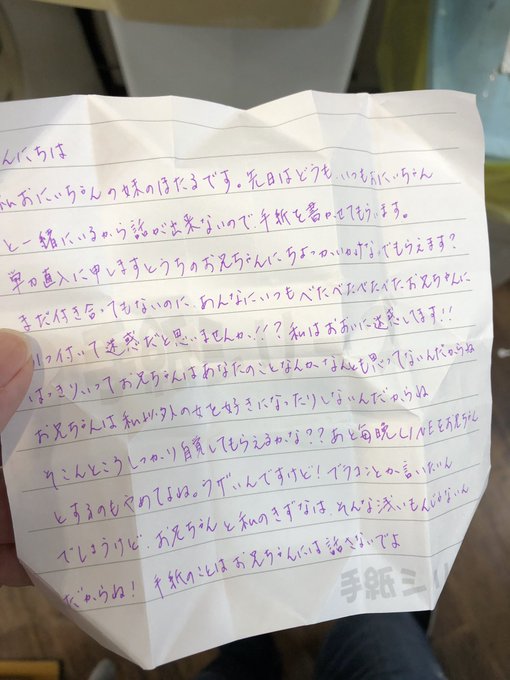 んにちは
私おにいちゃんの妹のほたるです。先日はどうも、いつもおにいちゃん
と一緒にいるから話が出来ないので手紙を書かせてもらいます。
単刀直入に申しますとうちのお兄ちゃんにちょっかいかけないでもらえます?
まだ付き合ってもないのに、あんなにいつもべたべたべたべたお兄ちゃんに
っ付いて迷惑だと思いませんか!!?私はおおいに迷惑してます!!
はっきりいってお兄ちゃんはあなたのことなんかなんとも思ってないんだからね
お兄ちゃんは私以外の女を好きになったりしないんだからね
そこんとこうしっかり自覚してもらえるかな??あと毎晩LINEをお兄ちゃん
とするのもやめてよね。ウザいんですけど!ブラコンとか言いたいん
でしょうけど、お兄ちゃんと私のきずなは、そんな浅いもんじゃないん
だからね!手紙のことはお兄ちゃんには話さないでよ